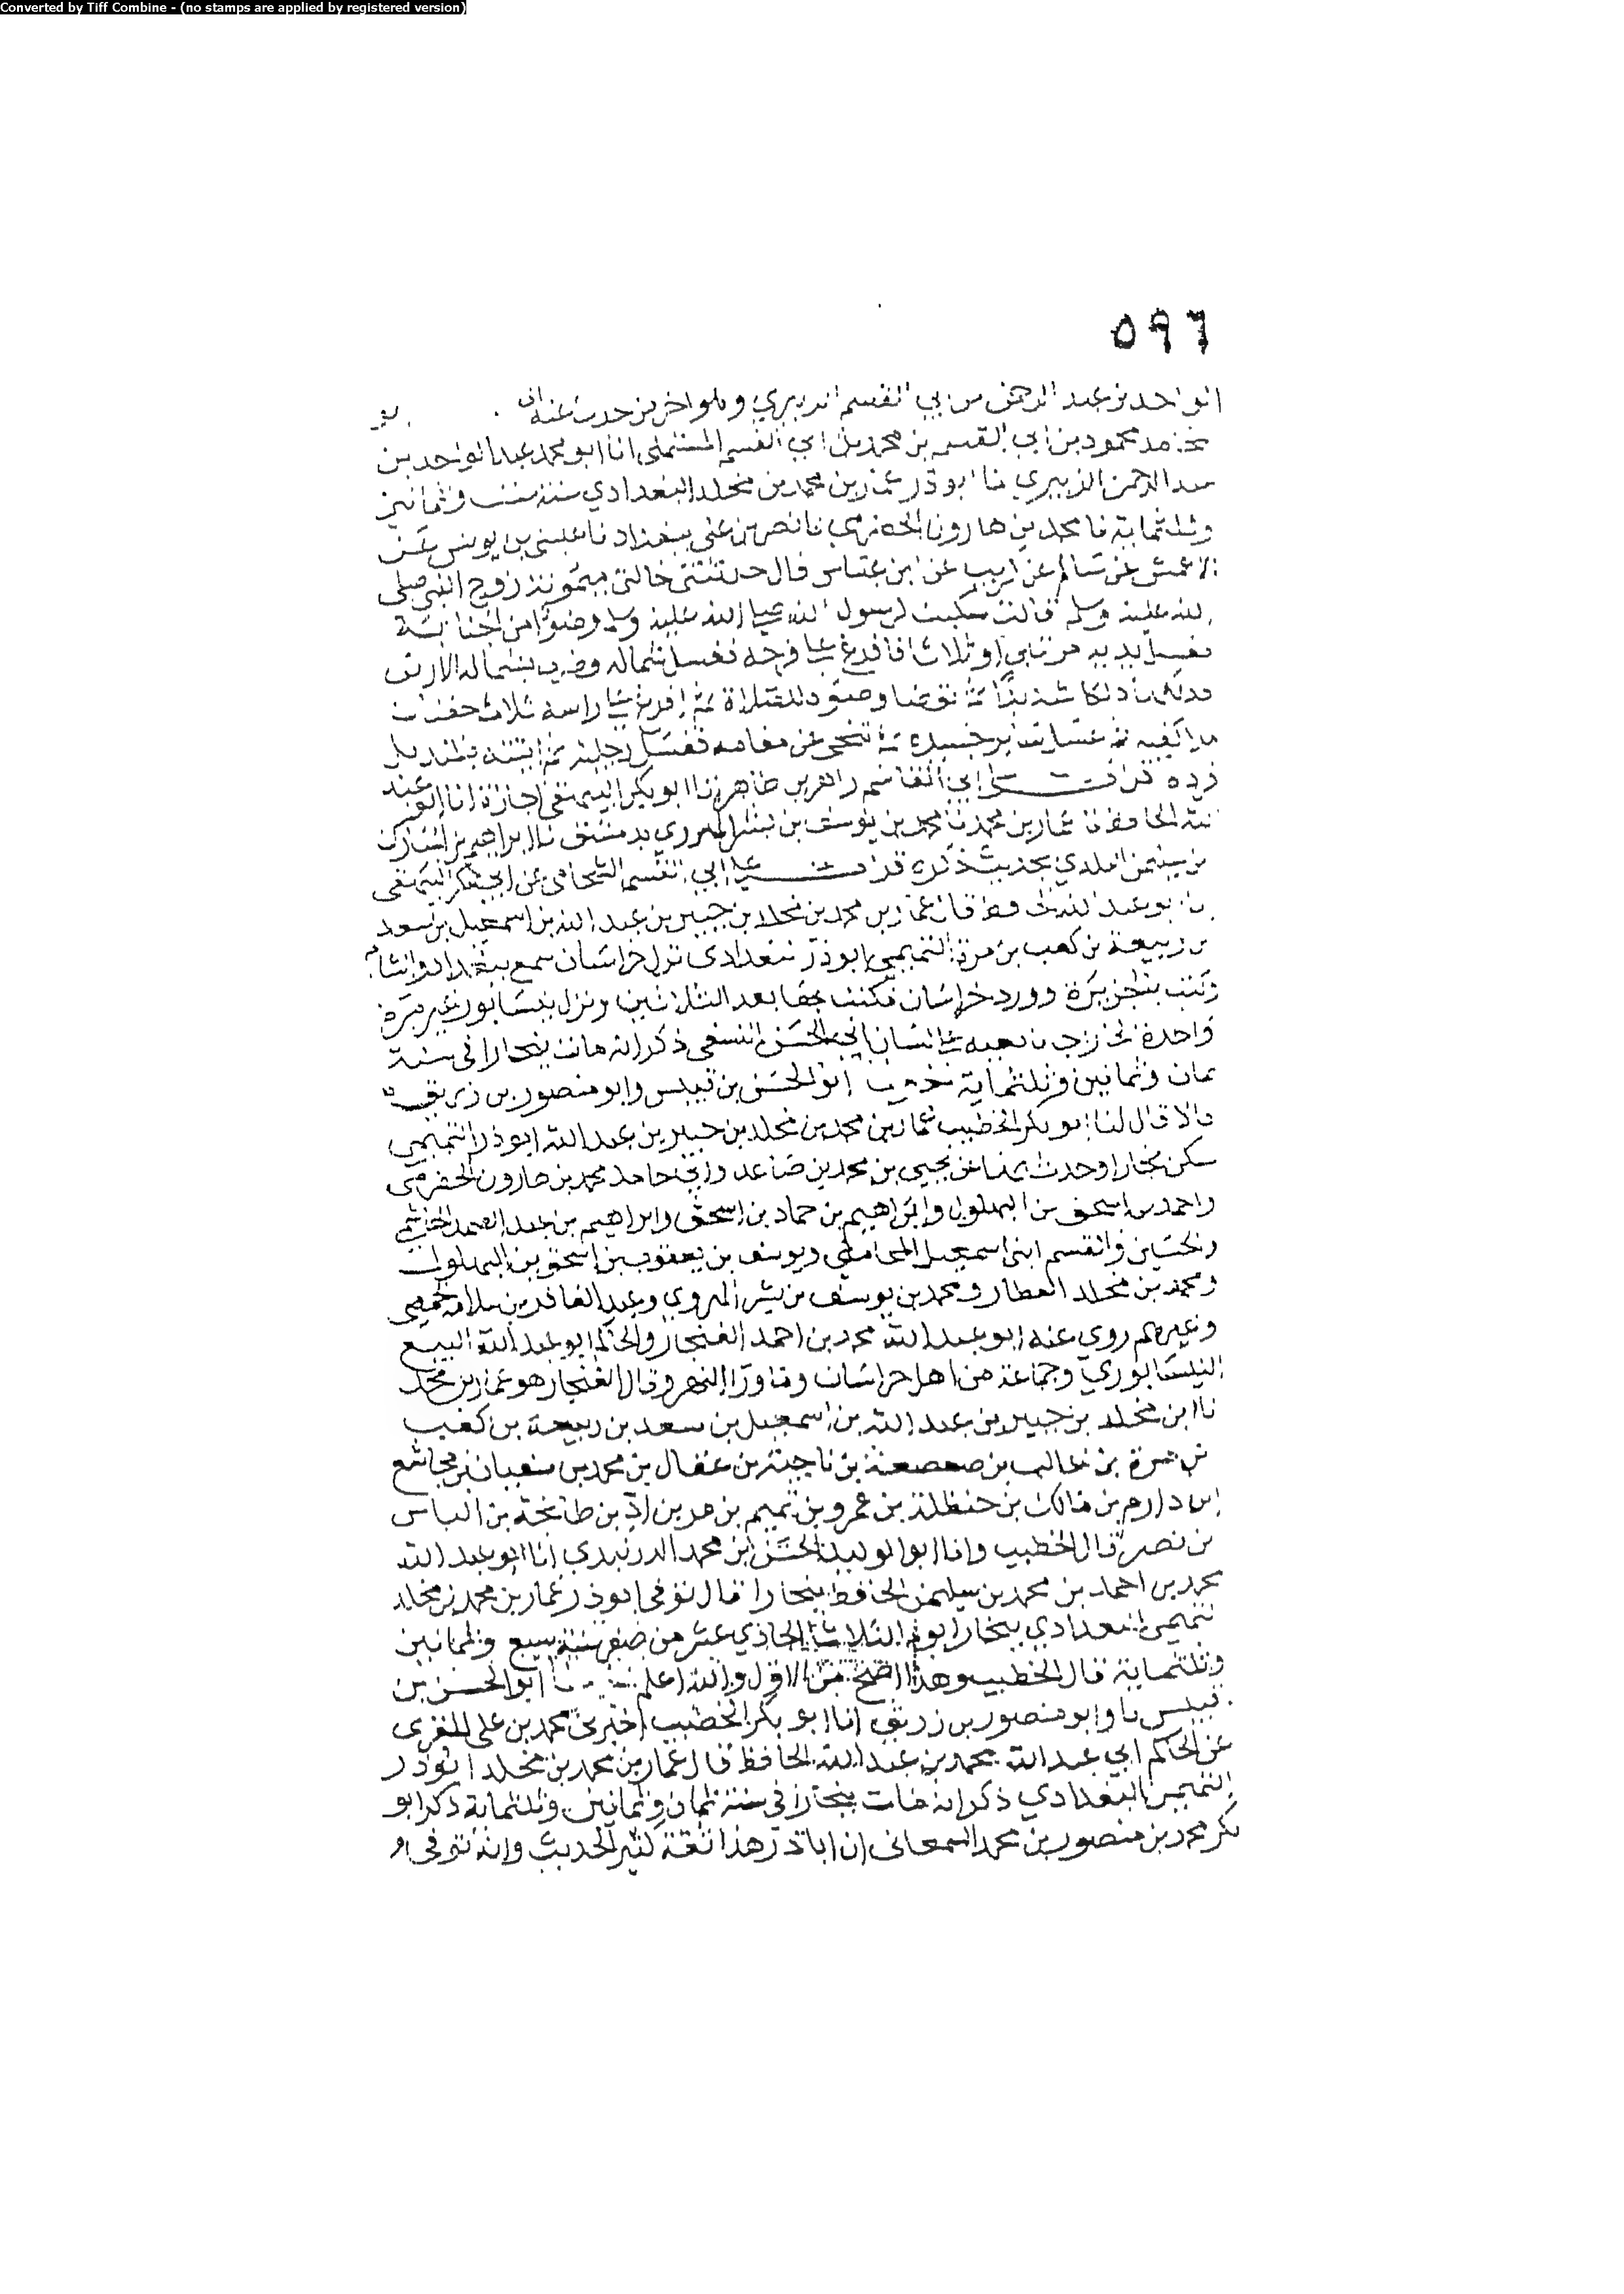 Converted by Tiff Combine - (no stamps are applied by registered version)
٥٩٦
الواحد بن عبد الرحمن بن ابي القسم الزبيري وهو اخر من حدث عنه
محمود بن ابي القسم بن محمد بن ابي القسم المستملى انا ابو محمد عبد الواحد بن
عبد الرحمن الزبيري نا ابو ذر عمار بن محمد بن مخلد البغدادي سنة ست وثمانين
وثلثماية نا محمد بن هارون الحضرمي نا نصر بن على ببغداد نا عيسى بن يونس عن
الاعمش عن سالم عن كريب عن ابن عباس قال حدثتنى خالتى ميمونة زوج النبي صلى
الله عليه وسلم قالت سكبت لرسول الله صلى الله عليه وسلم وضوا من الجنابة
فغسل يديه مرتين او ثلاثا فافرغ على فرجه فغسل بشماله وضرب بشماله الارض
فدلكها دلكا شديدا ثم توضا وضوه للصلاة ثم افرغ على راسه ثلاث حفنات
ملا كفيه ثم غسل سائر جسده ثم تنحى عن مقامه فغسل رجليه ثم اتيته بمنديل
فرده قرات على ابي القاسم زاهر بن طاهر انا ابو بكر البيهقى اجازة انا ابو عبد
الله الحافظ نا عمار بن محمد نا محمد بن يوسف بن بشر الهروي بدمشق نا ابراهيم بن
بن البلدي بحديث ذكره قرات على ابي القسم الشحامى عن ابي بكر البيهقى
انا ابو عبد الله الحافظ قال عمار بن محمد بن مخلد بن جبير بن عبد الله بن اسمعيل بن سعد
بن ربيعة بن كعب بن مرة التميمي ابو ذر بغدادى نزل خراسان سمع ببغداد والشام
وكتب بالجزيرة وورد خراسان فكتب بها بعد الثلاثين ونزل نيسابور غير مرة
واحدة ثم خرج على لسان ابي الحسن النسفى ذكر انه مات ببخارا فى سنة
ثمان وثمانين وثلثماية ابو الحسن بن قبيس وابو منصور بن زريق
قالا قال لنا ابو بكر الخطيب عمار بن محمد بن مخلد بن جبير بن عبد الله ابو ذر التميمي
سكن بخارا وحدث بها عن يحيى بن محمد بن صاعد وابي حامد محمد بن هارون الحضرمى
واحمد بن اسحق بن البهلول وابراهيم بن حماد بن اسحق وابراهيم بن عبد الصمد الهاشمي
والحسين والقسم ابنى اسمعيل المحاملى ويوسف بن يعقوب بن اسحق بن البهلول
ومحمد بن مخلد العطار ومحمد بن يوسف بن بشر الهروي وعبد الغافر بن سلامة الحمصي
وغيرهم روي عنه ابو عبد الله محمد بن احمد الغنجار والحاكم ابو عبد الله البيع
النيسابوري وجماعة من اهل خراسان وما ورا النهر وقال الغنجار هو عمار بن محمد
بن مخلد بن جبير بن عبد الله بن اسمعيل بن سعد بن ربيعة بن كعب
بن مرة بن غالب بن صعصعة بن ناجية بن عقال بن محمد بن سفيان بن مجاشع
بن دارم بن مالك بن حنظلة بن عمرو بن تميم بن مر بن اد بن طابخة بن الياس
بن نصر قال الخطيب وانا ابو الوليد الحسن بن محمد الدربندي انا ابو عبد الله
محمد بن احمد بن محمد بن سليمن الحافظ ببخارا قال توفى ابو ذر عمار بن محمد بن مخلد
التميمى البغدادي ببخارا يوم الثلاثا الحادي عشر من صفر سنة سبع وثمانين
وثلثماية قال الخطيب وهذا اصح من الاول والله اعلم ابو الحسن بن
قبيس نا وابو منصور بن زريق انا ابو بكر الخطيب اخبرنى محمد بن على المقرى
عن الحاكم ابي عبد الله محمد بن عبد الله الحافظ قال عمار بن محمد بن مخلد ابو ذر
التميمي البغدادي ذكر انه مات ببخارا فى سنة ثمان وثمانين وثلثماية ذكر ابو
بكر محمد بن منصور بن محمد السمعانى ان ابا ذر هذا ثقة كثير الحديث وانه توفى